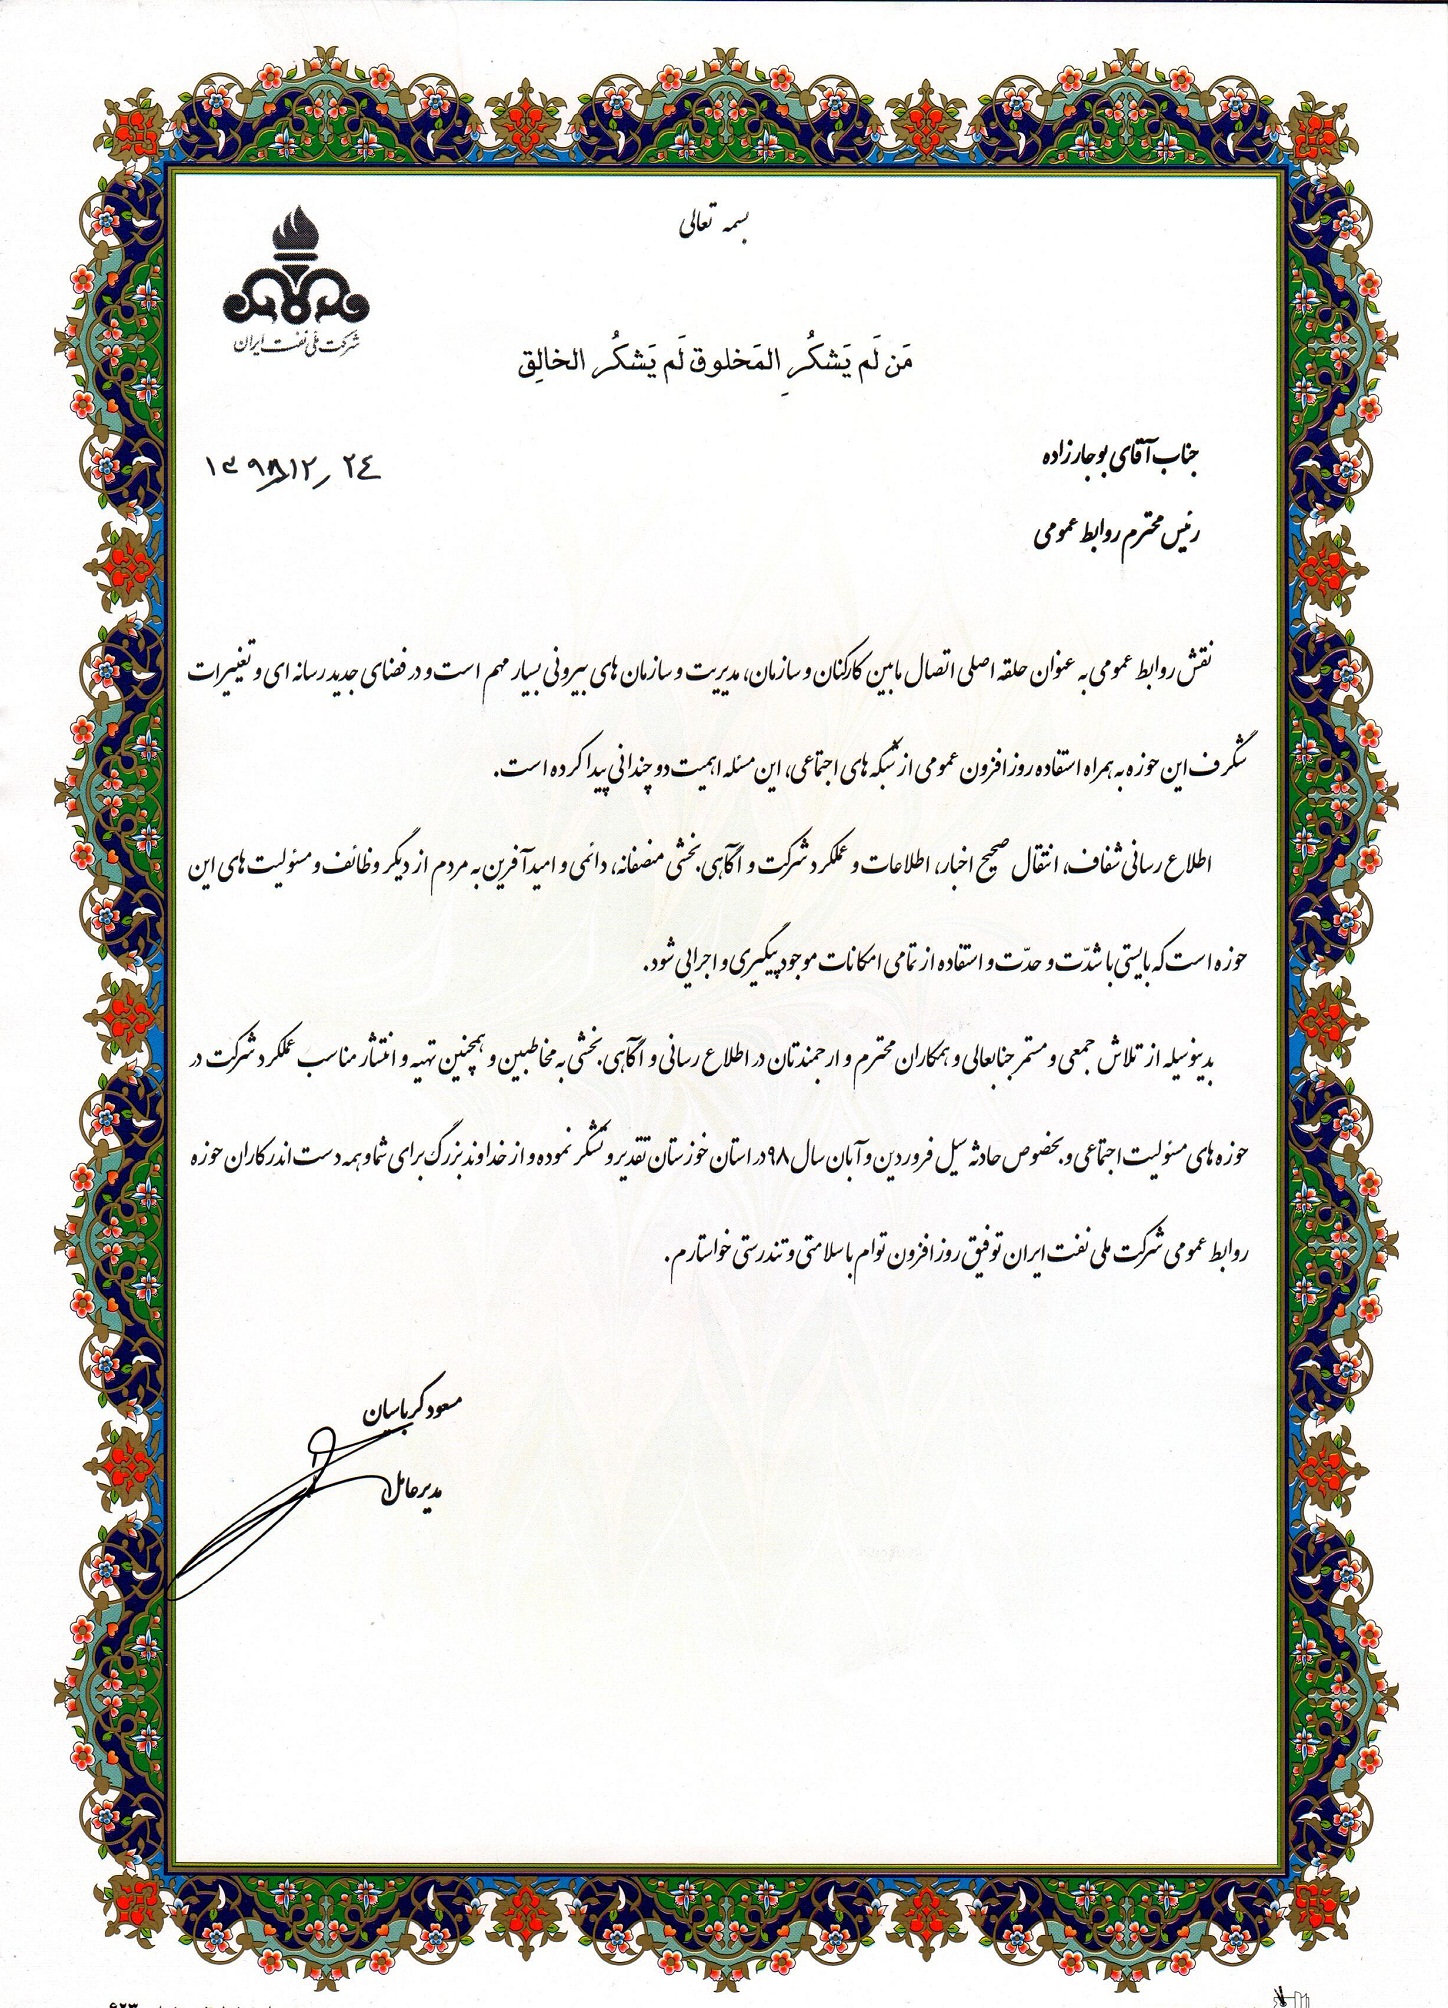 بسمه تعالی
شرکت ملی نفت ایران
مَن لَم یَشکُرِ المَخلوق لَم یَشکُرِ الخالِق
۱۳۹۸/۱۲/۲۴
جناب آقای بوجارزاده
رئیس محترم روابط عمومی
نقش روابط عمومی به عنوان حلقه اصلی اتصال مابین کارکنان و سازمان، مدیریت و سازمان های بیرونی بسیار مهم است و در فضای جدید رسانه ای و تغییرات
شگرف این حوزه به همراه استفاده روز افزون عمومی از شبکه های اجتماعی، این مسئله اهمیت دو چندانی پیدا کرده است.
اطلاع رسانی شفاف، انتقال صحیح اخبار، اطلاعات و عملکرد شرکت و آگاهی بخشی منصفانه، دائمی و امیدآفرین به مردم از دیگر وظائف و مسئولیت های این
حوزه است که بایستی با شدّت و حدّت و استفاده از تمامی امکانات موجود پیگیری و اجرایی شود.
بدینوسیله از تلاش جمعی و مستمر جنابعالی و همکاران محترم و ارجمندتان در اطلاع رسانی و آگاهی بخشی به مخاطبین و همچنین تهیه و انتشار مناسب عملکرد شرکت در
حوزه های مسئولیت اجتماعی و بخصوص حادثه سیل فروردین و آبان سال ۹۸ در استان خوزستان تقدیر و تشکر نموده و از خداوند بزرگ برای شما و همه دست اندرکاران حوزه
روابط عمومی شرکت ملی نفت ایران توفیق روز افزون توام با سلامتی و تندرستی خواستارم.
مسعود کرباسیان
مدیرعامل